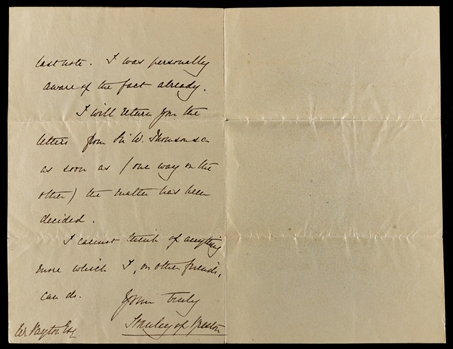 last note. I was personally
aware of the fact already.
I will return you the
letters from Sir W. Thomson &c
as soon as (one way or the
other) the matter has been
decided.
I cannot think of anything
more which I, or other friends,
can do.
Yours truly
Stanley of Preston
W. Payton Esq